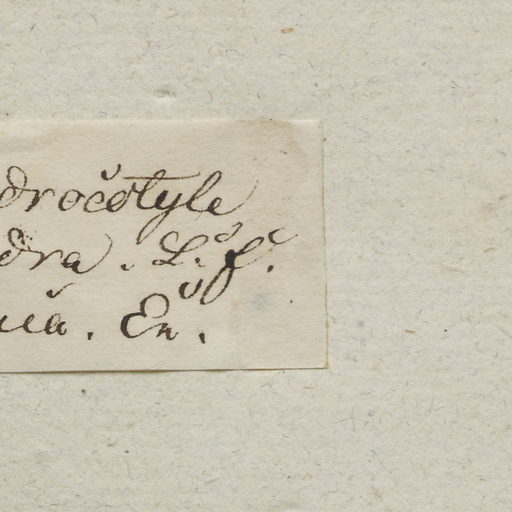 drocotyle
dra. L. f.
En.